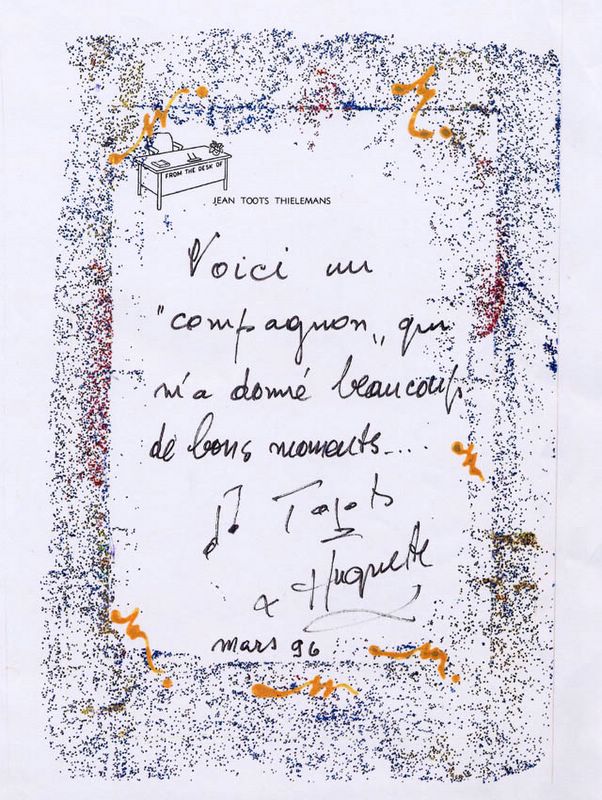 FROM THE DESK OF
JEAN TOOTS THIELEMANS
Voici un
"compagnon„ qui
m'a donné beaucoup
de bons moments....
Toots
& Huguette
mars 96